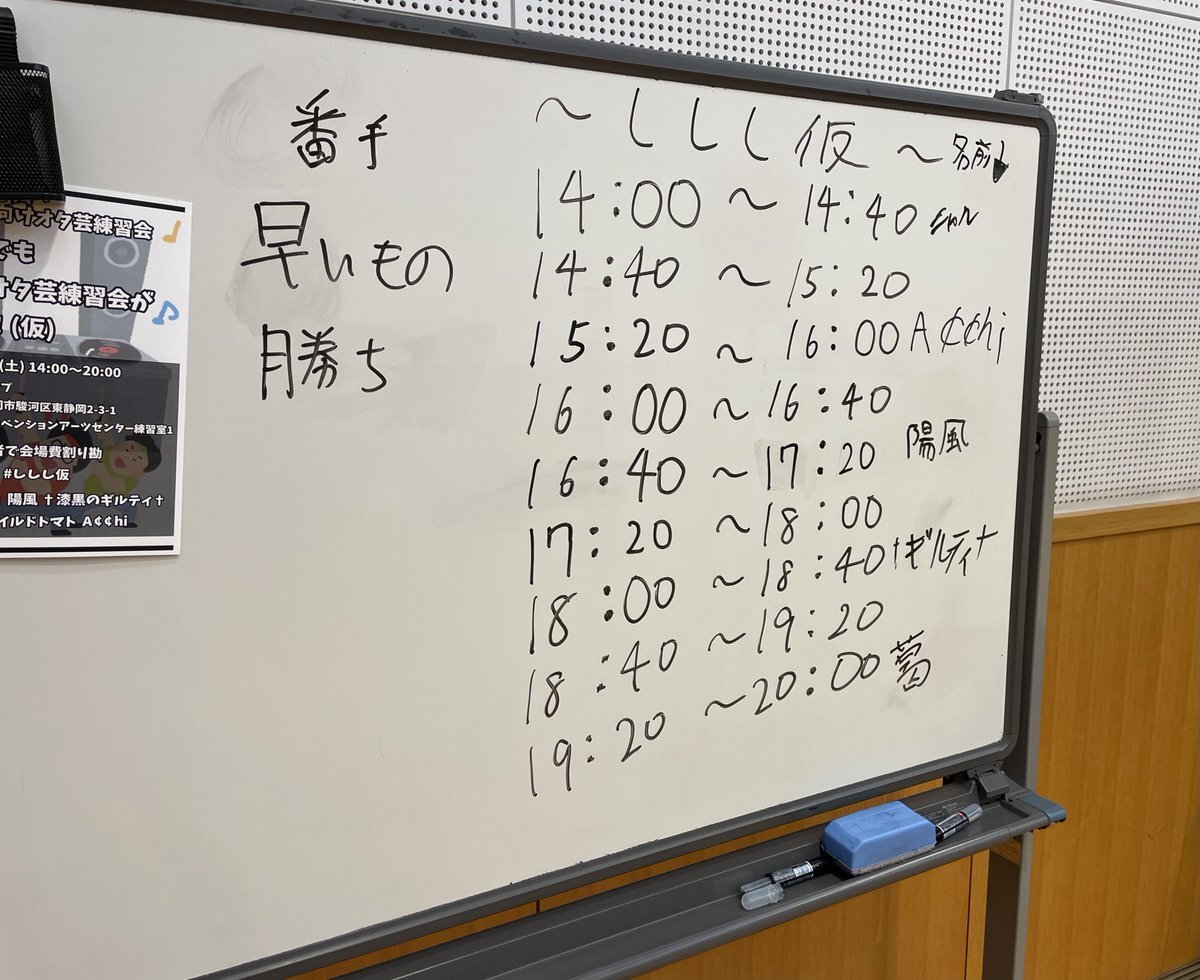 番手
早いもの
勝ち
~ししし仮~ 名前↓
14:00 ~ 14:40 シャル
14:40 ~ 15:20
15:20 ~ 16:00 A¢¢hi
16:00 ~ 16:40
16:40 ~ 17:20 陽風
17:20 ~ 18:00
18:00 ~ 18:40 †ギルティ†
18:40 ~ 19:20
19:20 ~ 20:00
向けオタ芸練習会
でも
オタ芸練習会が
(仮)
(土) 14:00〜20:00
プ
市駿河区東静岡2-3-1
ベンションアーツセンター練習室1
者で会場費割り勘
#ししし仮
陽風 †漆黒のギルティ†
イルドトマト A¢¢hi